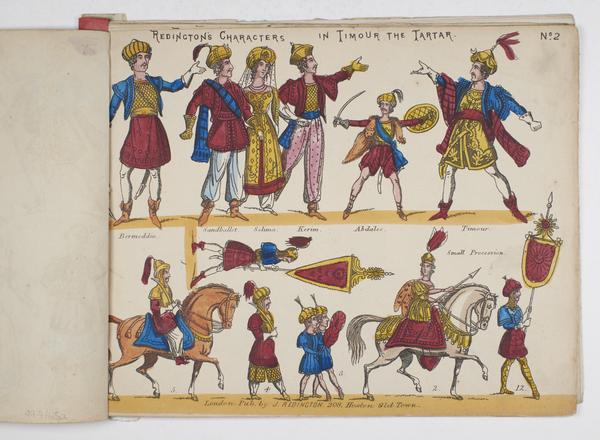 REDINGTON'S CHARACTERS IN TIMOUR THE TARTAR. Nº 2
Bermeddin. Sandballat. Selima. Kerim. Abdalec. Timour.
Small Procession.
5. 4. 3 2 12.
London. Pub. by J. REDINGTON. 208, Hoxton Old Town.